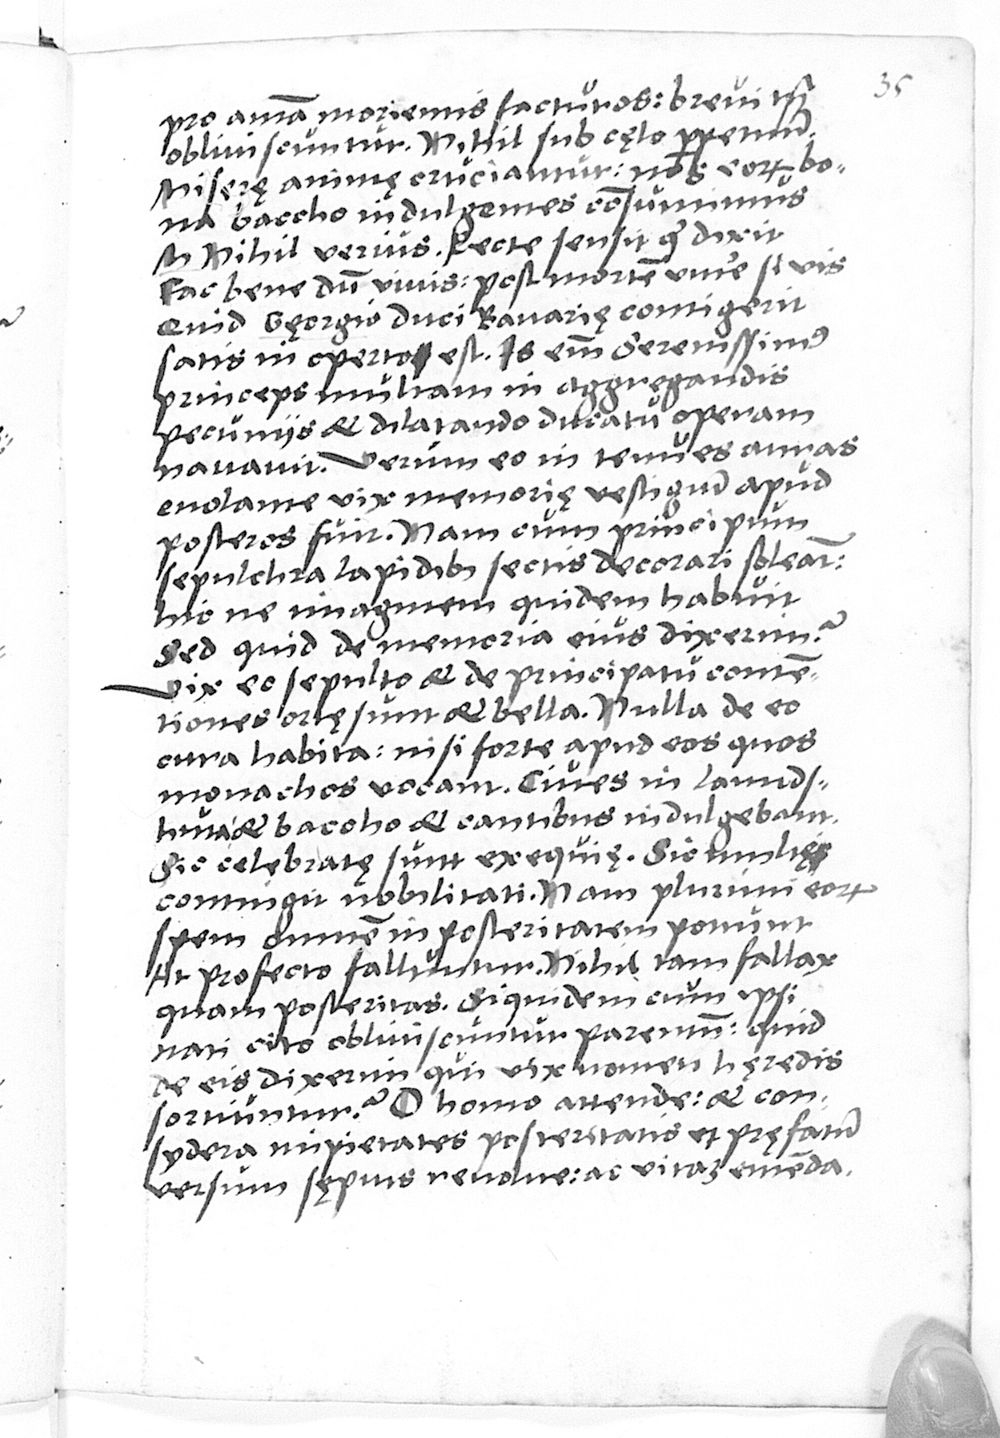 35
pro anĩa morientis facturos: brevi tñ
obliviscuntur. Nihil sub cęlo ꝑpetuũ.
Miserę animę cruciantur: nos eoꝝ bo-
na baccho indulgentes cõsumimus
Nihil verius. Recte sensit q̃ dixit
Fac bene dũ vivis: post mortẽ vivẽ si vis
Quid Gęorgio duci Bavarię contigerit
satis in operto est. Is eñi Serenissimꝰ
princeps multam in aggregandis
pecuniis & dilatando ducatu operam
navavit. Verum eo in tenues auras
evolante vix memorię vestigiũ apud
posteros fuit. Nam cum principum
sepulchra lapidibꝫ sectis decorari soleãt:
hic ne imaginem quidem habuit
Sed quid de memoria eius dixerim?
Vix eo sepulto & de principatu contẽ-
tiones ortę sunt & bella. Nulla de eo
cura habita: nisi forte apud eos quos
monachos vocant. Cives in Lannds-
huta & baccho & cantibus indulgebant.
Sic celebratę sunt exequię. Sic multę
contingit nobilitati. Nam plurimi eoꝝ
spem omnẽ in posteritatem ponunt
At profecto falluntur. Nihil tam fallax
quam posteritas. Siquidem cum ipsi
nati cito obliviscuntur parentũ: quid
de eis dixerim qui vix nomen hęredis
sortiuntur? O homo attende: & con-
sydera impietates posteritatis et pręfatũ
versum sępius revolve: ac vitaꝫ emẽda.